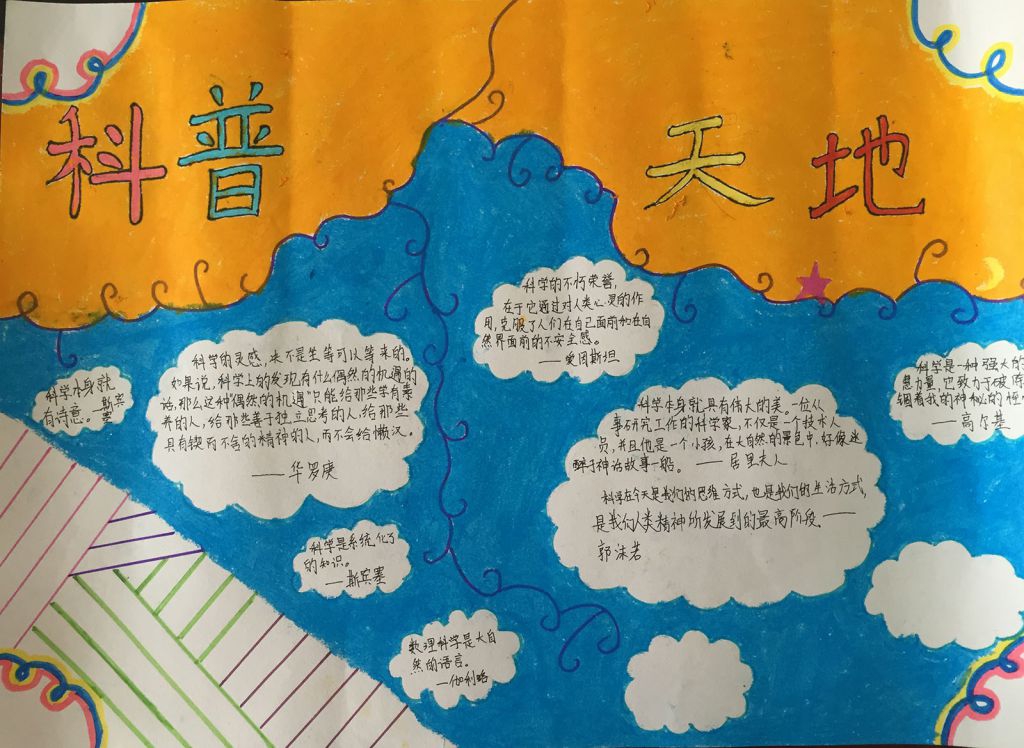 科普
天地
科学的不朽荣誉,
在于它通过对人类心灵的作
用,克服了人们在自己面前和在自
然界面前的不安全感。
——爱因斯坦
科学的灵感,决不是坐等可以等来的。
如果说,科学上的发现有什么偶然的机遇的
话,那么这种“偶然的机遇”只能给那些学有素
养的人,给那些善于独立思考的人,给那些
具有锲而不舍的精神的人,而不会给懒汉。
——华罗庚
科学本身就
有诗意。—斯宾
塞
科学是一种强大的
想力量,它致力于破除
锢着我的神秘的
——高尔基
科学本身就具有伟大的美。一位从
事研究工作的科学家,不仅是一个技术人
员,并且他是一个小孩,在大自然的景色中,好像迷
醉于神话故事一般。——居里夫人
科学在今天是我们的思维方式,也是我们的生活方式,
是我们人类精神所发展到的最高阶段——
郭沫若
科学是系统化了
的知识。
——斯宾塞
数理科学是大自
然的语言。
—伽利略